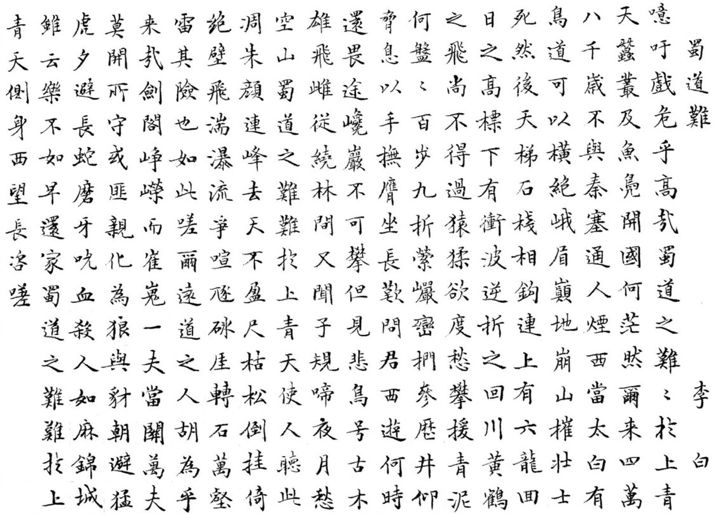 蜀道難 李白
噫吁戲危乎高哉蜀道之難〻於上青
天蠶叢及魚鳧開國何茫然爾来四萬
八千歲不與秦塞通人煙西當太白有
鳥道可以橫絶峨眉巔地崩山摧壯士
死然後天梯石棧相鉤連上有六龍回
日之高標下有衝波逆折之回川黃鶴
之飛尚不得過猿猱欲度愁攀援青泥
何盤〻百步九折縈巖巒捫參歷井仰
脅息以手撫膺坐長歎問君西遊何時
還畏途巉巖不可攀但見悲鳥号古木
雄飛雌從繞林間又聞子規啼夜月愁
空山蜀道之難難於上青天使人聽此
凋朱顏連峰去天不盈尺枯松倒挂倚
絶壁飛湍瀑流爭喧豗砯厓轉石萬壑
雷其險也如此嗟爾遠道之人胡為乎
来哉劍閣崢嶸而崔嵬一夫當關萬夫
莫開所守或匪親化為狼與豺朝避猛
虎夕避長蛇磨牙吮血殺人如麻錦城
雖云樂不如早還家蜀道之難難於上
青天側身西望長咨嗟